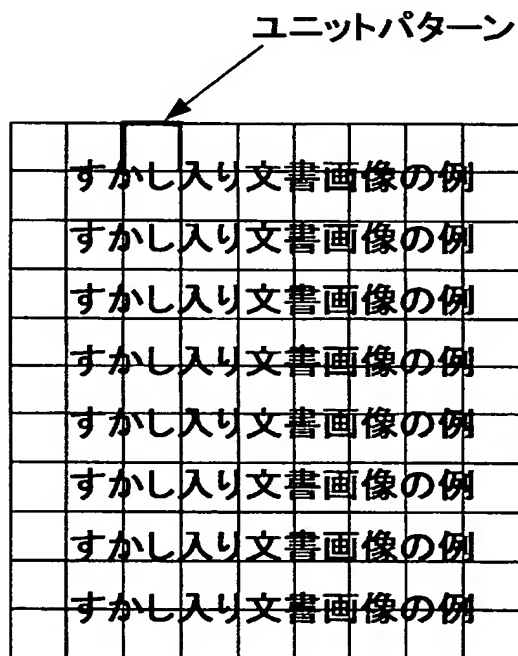 ユニットパターン
すかし入り文書画像の例
すかし入り文書画像の例
すかし入り文書画像の例
すかし入り文書画像の例
すかし入り文書画像の例
すかし入り文書画像の例
すかし入り文書画像の例
すかし入り文書画像の例